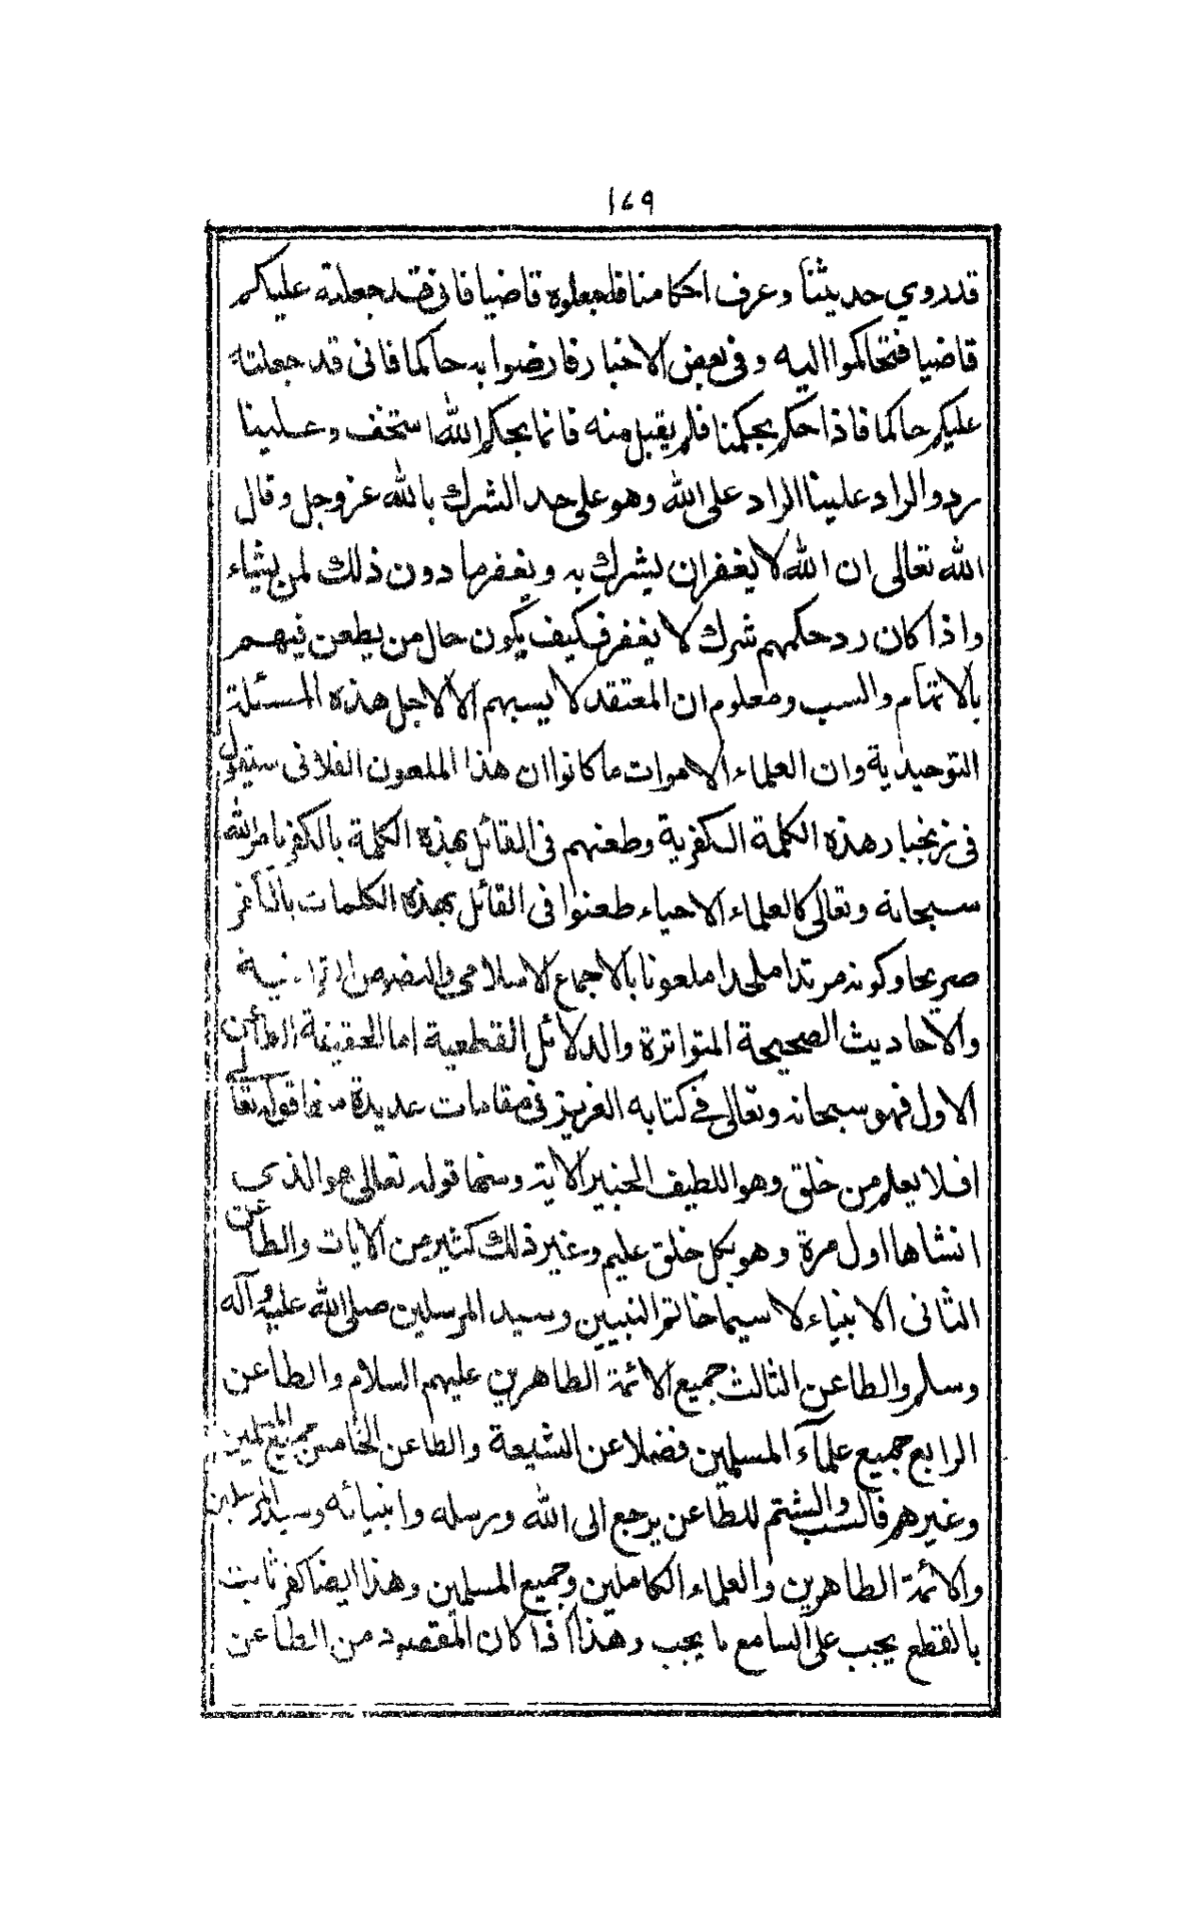 ١٤٩
قد روي حديثنا وعرف احكامنا فاجعلوه قاضيا فانى قد جعلته عليكم
قاضيا فتحاكموا اليه وفى بعض الاخبار فارضوا به حاكما فانى قد جعلته
عليكم حاكما فاذا حكم بحكمنا فلم يقبل منه فانما بحكم الله استخف وعلينا
رد والراد علينا الراد على الله وهو على حد الشرك بالله عز وجل وقال
الله تعالى ان الله لا يغفر ان يشرك به ويغفر ما دون ذلك لمن يشاء
واذا كان رد حكمهم شرك لا يغفر فكيف يكون حال من يطعن فيهم
بالاتهام والسب ومعلوم ان المعتقد لا يسبهم الا لاجل هذه المسئلة
التوحيدية وان العلماء الاموات ما كانوا ان هذا الملعون الفلانى سيقول
فى زنجبار هذه الكلمة الكفرية وطعنهم فى القائل بهذه الكلمة بالكفر بامر الله
سبحانه وتعالى كالعلماء الاحياء طعنوا فى القائل بهذه الكلمات بانه كافر
صريحا وكونه مرتدا ملحدا ملعونا بالاجماع الاسلامى والنصوص القرآنية
والاحاديث الصحيحة المتواترة والدلائل القطعية اما الحقيقة الطاعن
الاول فهو سبحانه وتعالى في كتابه العزيز فى مقامات عديدة منها قوله تعالى
افلا يعلم من خلق وهو اللطيف الخبير الاية ومنها قوله تعالى هو الذي
انشاها اول مرة وهو بكل خلق عليم وغير ذلك كثير من الايات والطاعن
الثانى الانبياء لا سيما خاتم النبيين وسيد المرسلين صلى الله عليه وآله
وسلم والطاعن الثالث جميع الائمة الطاهرين عليهم السلام والطاعن
الرابع جميع علمآء المسلمين فضلا عن الشيعة والطاعن الخامس جميع المسلمين
وغيرهم فالسب والشتم للطاعن يرجع الى الله ورسله وانبيائه وسيد المرسلين
والائمة الطاهرين والعلماء الكاملين وجميع المسلمين وهذا ايضا كفر ثابت
بالقطع يجب على السامع ما يجب وهذا اذا كان المقصود من الطاعن